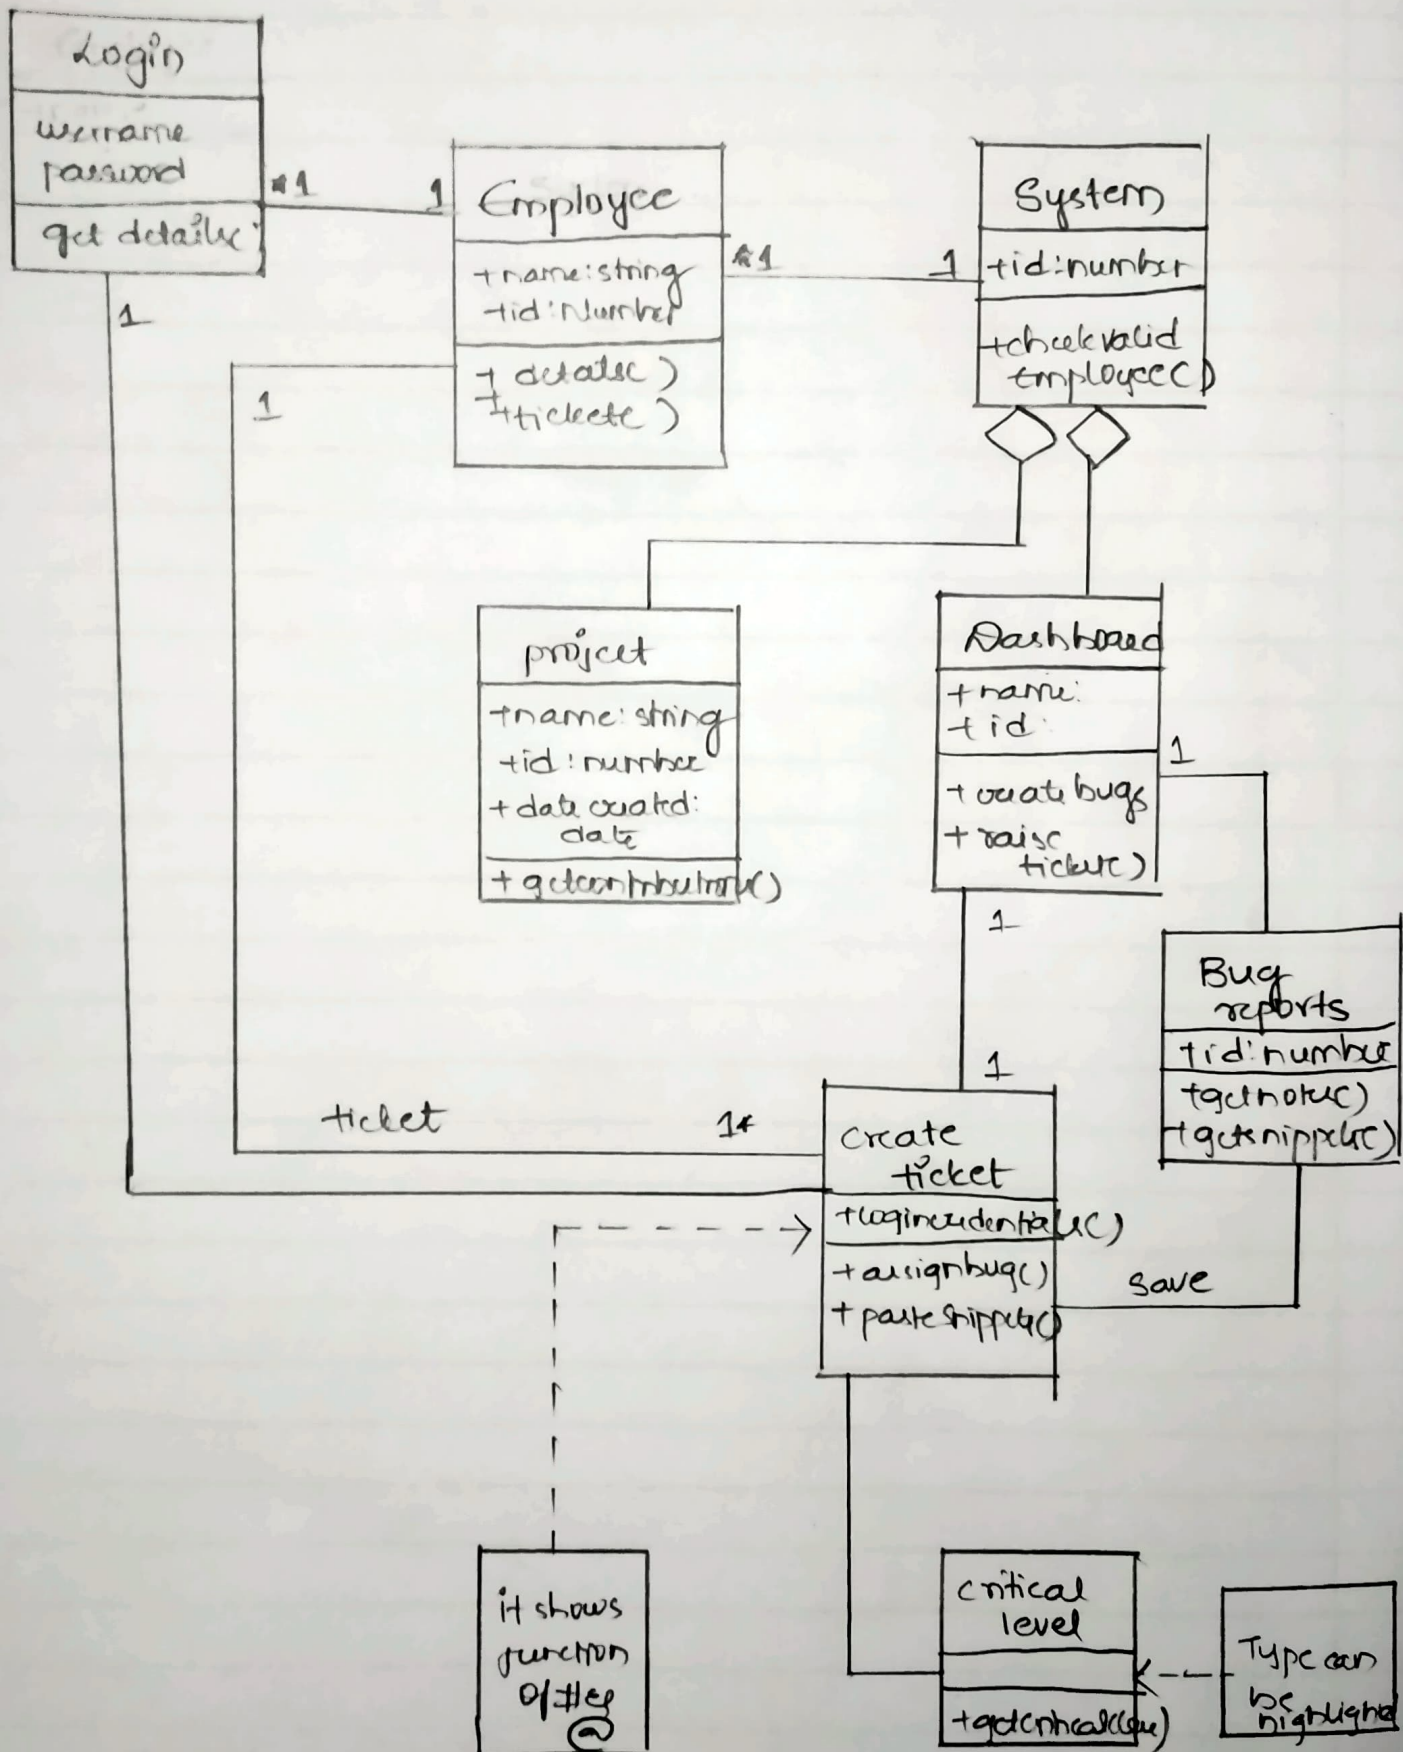 Login
username
password
get details()
*1
1
Employee
+name:string
+id:Number
+ details()
+ticket()
*1
1
System
+id:number
+check valid
Employee()
1
1
project
+name: string
+id: number
+ date created:
date
+ getcontributors()
Dashboard
+name:
+id:
+ create bugs
+ raise
ticket()
1
1
1
Bug
reports
+id:number
+getnote()
+getsnippets()
ticket
1*
create
ticket
+logincredentials()
+assignbug()
+ paste snippets()
save
it shows
function
@
critical
level
Type can
be